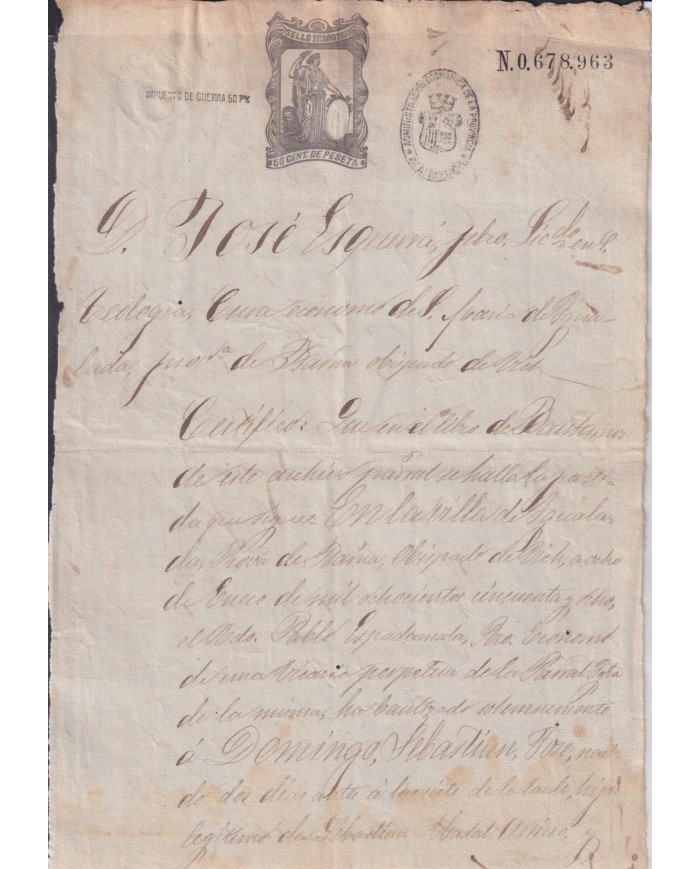 SELLO
N.0.678.963
IMPUESTO DE GUERRA 50 Pˢ
ADMINISTRACION ECONOMICA DE LA PROVINCIA
50 CENT. DE PESETA
D. José Esquerrá, pbro, Licdo en S.
Teología, Cura ecónomo de S. María de Igua-
lada, prova de Barna obispado de Vich
Certifico: Que en el libro de Bautismos
de este archivo parral se halla la parti-
da que sigue: En la villa de Iguala-
da, Prova de Barna, Obispado de Vich, a ocho
de Enero de mil ochocientos cincuenta y ocho,
el Rdo. Pablo Espadamala, Pro. Ecónomo
de una Vicaria perpetua de la Parral Igla
de la misma, ha bautizado solemnemente
á Domingo, Sebastian, Jose, naci-
do dos dias antes á las siete de la tarde, hijo
legítimo de Sebastian Abadal